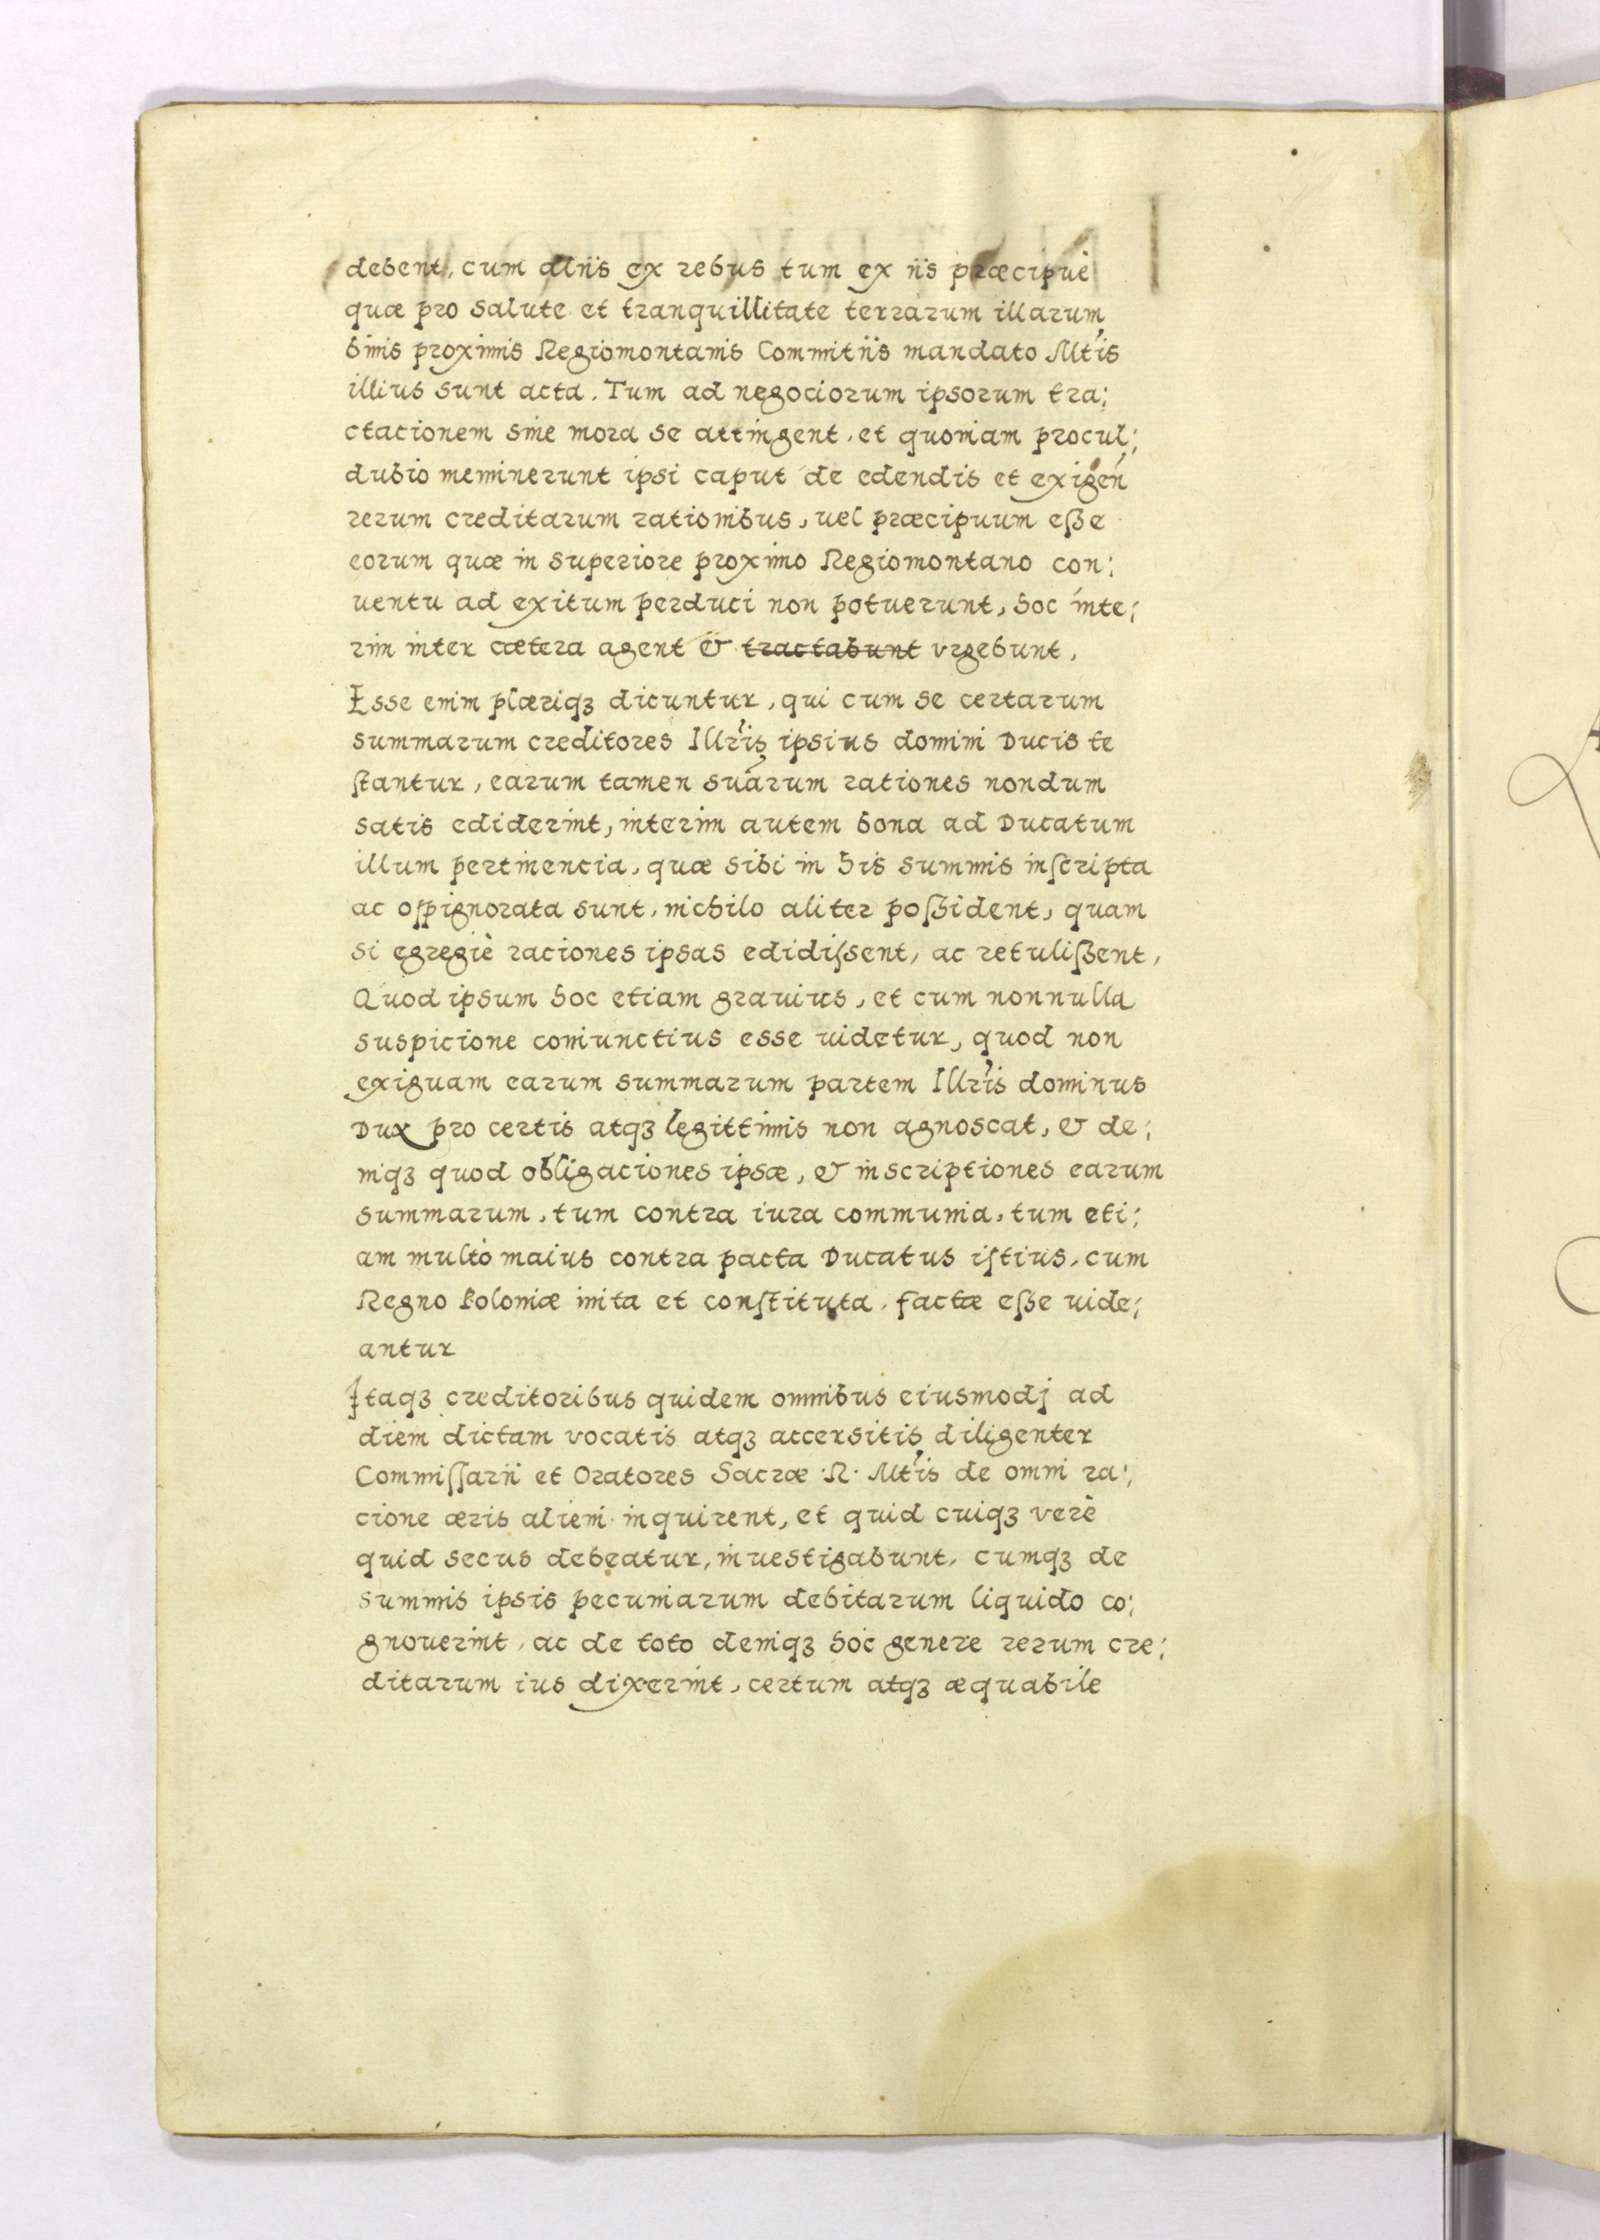 debent, cum aliis ex rebus tum ex iis præcipuè
quæ pro salute et tranquillitate terrarum illarum
binis proximis Regiomontanis Commitiis mandato Mtis
illius sunt acta. Tum ad negociorum ipsorum tra;
ctacionem sine mora se attingent, et quoniam procul;
dubio meminerunt ipsi caput de edendis et exigen
rerum creditarum rationibus, uel præcipuum eſse
eorum quæ in superiore proximo Regiomontano con;
uentu ad exitum perduci non potuerunt, hoc inte;
rim inter cætera agent & tractabunt vrgebunt,
Esse enim plæriqꝫ dicuntur, qui cum se certarum
summarum creditores Illris ipsius domini Ducis te
ſtantur, earum tamen suarum rationes nondum
satis ediderint, interim autem bona ad Ducatum
illum pertinencia, quæ sibi in his summis inſcripta
ac oppignorata sunt, nichilo aliter poſsident, quam
si egregiè raciones ipsas edidiſsent, ac retuliſsent,
Quod ipsum hoc etiam grauius, et cum nonnulla
suspicione coniunctius esse uidetur, quod non
exiguam earum summarum partem Illris dominus
Dux pro certis atqꝫ legittimis non agnoscat, & de;
niqꝫ quod obligaciones ipsæ, & inscriptiones earum
summarum, tum contra iura communia, tum eti;
am multò maius contra pacta Ducatus iſtius, cum
Regno Poloniæ inita et conſtituta, factæ eſse uide;
antur
Itaqꝫ creditoribus quidem omnibus eiusmodj ad
diem dictam vocatis atqꝫ accersitis diligenter
Commiſſarii et Oratores Sacræ R. Mtis de omni ra;
cione æris alieni inquirent, et quid cuiqꝫ verè
quid secus debeatur, inuestigabunt, cumqꝫ de
summis ipsis pecuniarum debitarum liquido co;
gnouerint, ac de toto deniqꝫ hoc genere rerum cre;
ditarum ius dixerint, certum atqꝫ æquabile